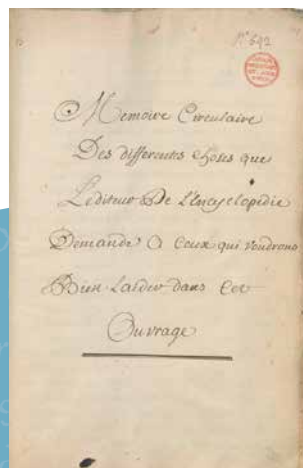 N° 692
Memoire Circulaire
Des differentes choses que
L'editeur De L'Encyclopédie
Demande a Ceux qui voudrons
Bien Laider dans Cet
Ouvrage